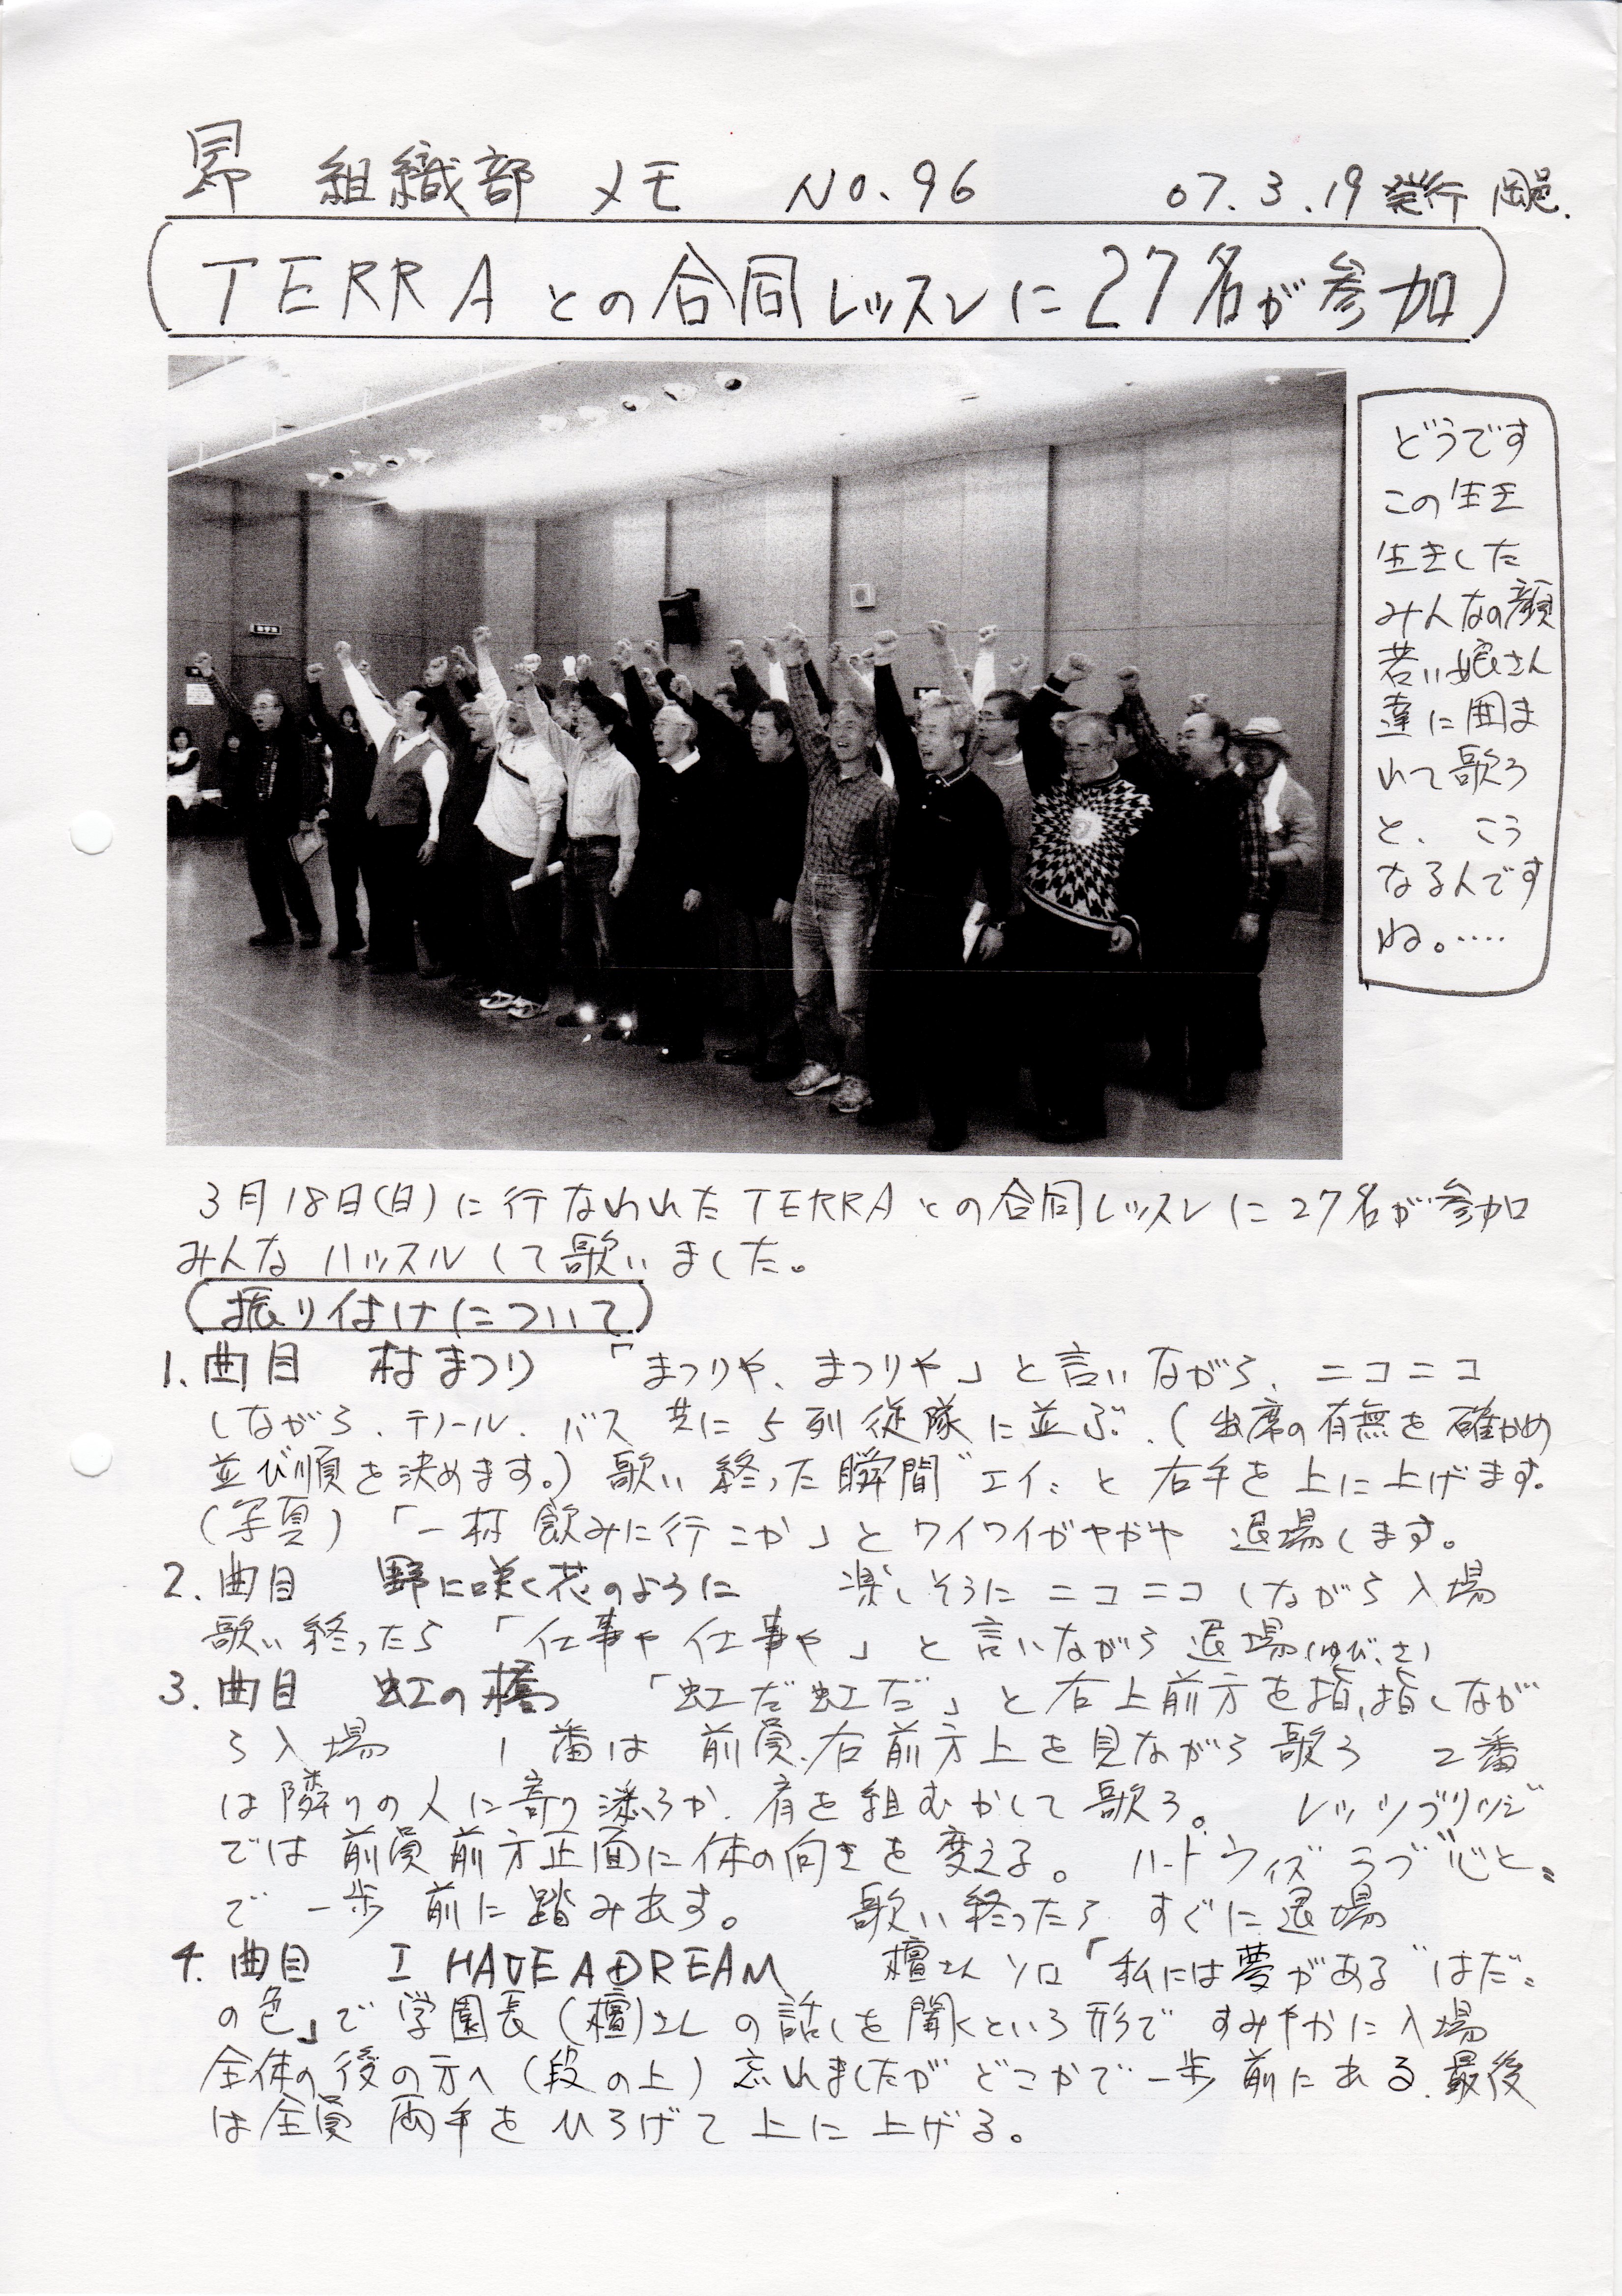 昴 組織部 メモ NO.96 07.3.19 発行
TERRAとの合同レッスンに27名が参加
どうです
この生き
生きした
みんなの顔
若い娘さん
達に囲ま
れて歌う
と、こう
なるんです
ね。‥‥
3月18日(日)に行なわれたTERRAとの合同レッスンに27名が参加
みんなハッスルして歌いました。
振り付けについて
1.曲目 村まつり 「まつりや、まつりや」と言いながら、ニコニコ
しながら、テノール、バス 共に5列従隊に並ぶ。(出席の有無を確かめ
並び順を決めます。)歌い終った瞬間〝エイ〟と右手を上に上げます。
(写真) 「一杯飲みに行こか」とワイワイガヤガヤ 退場します。
2.曲目 野に咲く花のように 楽しそうにニコニコしながら入場
歌い終ったら 「仕事や仕事や」と言いながら退場
(ゆびさし)
3.曲目 虹の橋 「虹だ虹だ」と右上前方を指指しなが
ら入場 1番は 前員、右前方上を見ながら歌う 2番
は隣りの人に寄り添うか、肩を組むかして歌う。 レッツブリッジ
では前員前方正面に体の向きを変える。 ハードウィズラブ〝心と〟
で 一歩 前に踏み出す。 歌い終ったら すぐに退場
4.曲目 I HAVE A DREAM 檀さんソロ「私には夢がある〝はだ〟
の色」で学園長(檀)さんの話しを聞くという形ですみやかに入場
全体の後の方へ(段の上)忘れましたがどこかで一歩前にある。最後
は全員 両手をひろげて上に上げる。